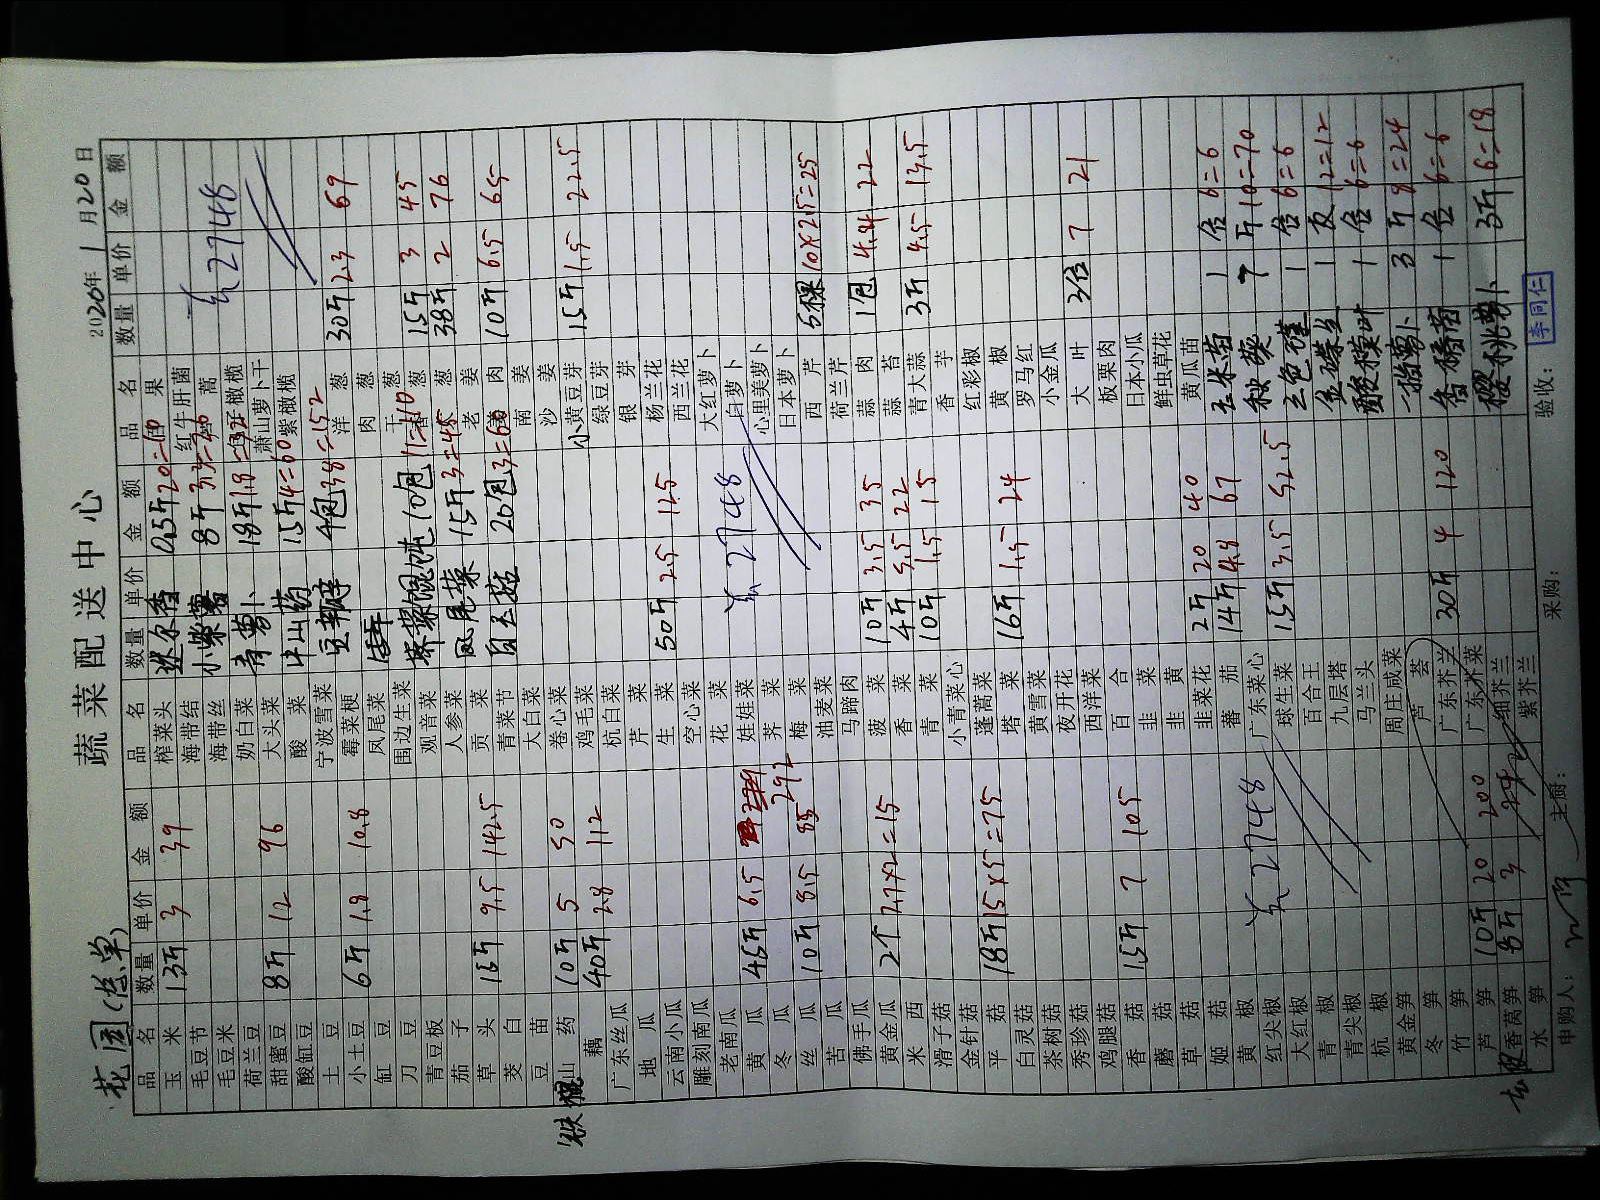 蔬菜配送中心
花园(总单)
2020年1月20日
品名 数量 单价 金额
玉米 13斤 3 39
毛豆节
毛豆米
荷兰豆
甜蜜豆 8斤 12 96
酸缸豆
土豆
小土豆 6斤 1.8 10.8
缸豆
刀豆
青豆板
茄子
草头 15斤 9.5 142.5
茭白
豆苗
铁棍山药 10斤 5 50
藕 40斤 2.8 112
广东丝瓜
地瓜
云南小瓜
雕刻南瓜
老南瓜
黄瓜 45斤 6.5 292
冬瓜
丝瓜 10斤 8.5 85
苦瓜
佛手瓜
黄金瓜 2个 2.7×2=15
西米
滑子菇
金针菇
平菇 18斤 15×5=75
白灵菇
茶树菇
秀珍菇
鸡腿菇
香菇 15斤 7 105
蘑菇
草菇
姬菇
黄椒
红尖椒 2748
大红椒
青椒
青尖椒
杭椒
黄金笋
冬笋
竹笋
芦笋 10斤 20 200
香莴笋 8斤 3 24
水笋
品名 数量 单价 金额
榨菜头 迷尔香 0.5斤 20=10
海带结
海带丝 小紫薯 8斤
奶白菜 青萝卜 18斤 1.8
大头菜
酸菜 山药 15斤 4=60
宁波雪菜 豆瓣 4包 38=152
霉菜梗
凤尾菜
围边生菜 荠菜馄饨 10包 11=110
观音菜
人参菜 凤尾菜 15斤 3=45
贡菜 白玉菇 20包 3=60
青菜节
大白菜
卷心菜
鸡毛菜
杭白菜
芹菜
生菜 50斤 2.5 125
空心菜
花菜
娃娃菜 2748
荠菜
梅菜
油麦菜
马蹄肉
菠菜 10斤 3.5 35
香菜 4斤 5.5 22
青菜 10斤 1.5 15
小青菜心
蓬蒿菜
塔菜 16斤 1.5 24
黄雪菜
夜开花
西洋菜
百合
韭菜
韭黄
韭菜花 2斤 20 40
蕃茄 14斤 4.8 67
广东菜心
球生菜 15斤 3.5 52.5
百合王
九层塔
马兰头
周庄咸菜
芦荟
广东芥兰 30斤 4 120
广东芥菜
细芥兰
紫芥兰
品名 数量 单价 金额
红牛肝菌
2748
萧山萝卜干
紫橄榄
洋葱 30斤 2.3 69
肉葱
干葱
香葱 15斤 3 45
老姜 38斤 2 76
肉姜
南姜 10斤 6.5 65
沙姜
小黄豆芽 15斤 1.5 22.5
绿豆芽
银芽
杨兰花
西兰花
大红萝卜
白萝卜
心里美萝卜
日本萝卜
西芹 5棵 10×2.5=25
荷兰芹
蒜肉 1包 4.4 22
蒜苔
青大蒜 3斤 4.5 13.5
香芋
红彩椒
黄椒
罗马红
小金瓜
大叶 3包 7 21
板栗肉
日本小瓜
鲜虫草花
黄瓜苗
玉米苗 1 盒 6=6
秋葵 7 斤 10=70
三色堇 1 盒 6=6
1 12=12
酸模叶 1 盒 6=6
萝卜 3斤 8=24
1盒 6=6
樱桃萝卜 3斤 6=18
申购人:
主厨:
采购:
验收:
李同仁